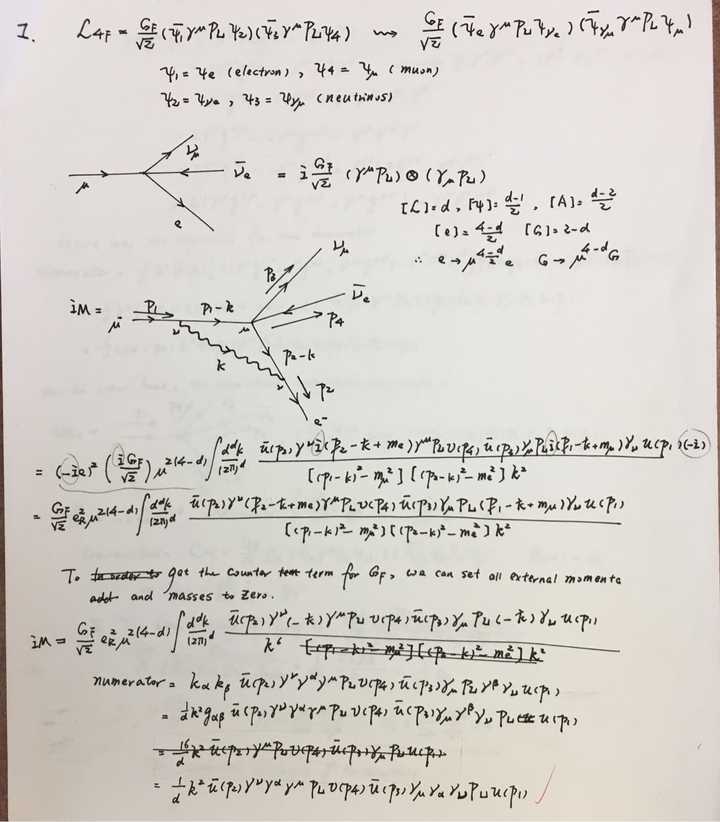 1. L_4F = G_F/√2 (ψ̄_1 γ^μ P_L ψ_2)(ψ̄_3 γ^μ P_L ψ_4) ⇝ G_F/√2 (ψ̄_e γ^μ P_L ψ_νe)(ψ̄_νμ γ^μ P_L ψ_μ)
ψ_1 = ψ_e (electron), ψ_4 = ψ_μ (muon)
ψ_2 = ψ_νe, ψ_3 = ψ_νμ (neutrinos)
μ ν_μ ν̄_e e = i G_F/√2 (γ^μ P_L) ⊗ (γ_μ P_L)
[L] = d, [ψ] = d-1/2, [A] = d-2/2
[e] = 4-d/2 [G] = 2-d
∴ e → μ^{4-d/2} e G → μ^{4-d} G
iM = μ^- p_1 p_1-k μ p_3 ν_μ ν̄_e p_4 p_2-k p_2 e^- k ν ν
= (-ie)^2 (i G_F/√2) μ^{2(4-d)} ∫ d^dk/(2π)^d ū(p_2) γ^ν i(p̸_2 - k̸ + m_e) γ^μ P_L v(p_4) ū(p_3) γ_μ P_L i(p̸_1 - k̸ + m_μ) γ_ν u(p_1) (-i) / [(p_1-k)^2 - m_μ^2] [(p_2-k)^2 - m_e^2] k^2
= G_F/√2 e_R^2 μ^{2(4-d)} ∫ d^dk/(2π)^d ū(p_2) γ^ν (p̸_2 - k̸ + m_e) γ^μ P_L v(p_4) ū(p_3) γ_μ P_L (p̸_1 - k̸ + m_μ) γ_ν u(p_1) / [(p_1-k)^2 - m_μ^2] [(p_2-k)^2 - m_e^2] k^2
To in order to get the counter tem term for G_F, we can set all external momenta
add and masses to zero.
iM = G_F/√2 e_R^2 μ^{2(4-d)} ∫ d^dk/(2π)^d ū(p_2) γ^ν (-k̸) γ^μ P_L v(p_4) ū(p_3) γ_μ P_L (-k̸) γ_ν u(p_1) / k^6 [(p_1-k)^2 - m_μ^2] [(p_2-k)^2 - m_e^2] k^2
numerator = k_α k_β ū(p_2) γ^ν γ^α γ^μ P_L v(p_4) ū(p_3) γ_μ P_L γ^β γ_ν u(p_1)
= 1/d k^2 g_αβ ū(p_2) γ^ν γ^α γ^μ P_L v(p_4) ū(p_3) γ_μ γ^β γ_ν P_L u(p_1)
= 16/d k^2 ū(p_2) γ^μ P_L v(p_4) ū(p_3) γ_μ P_L u(p_1)
= 1/d k^2 ū(p_2) γ^ν γ^α γ^μ P_L v(p_4) ū(p_3) γ_μ γ_α γ_ν P_L u(p_1) ✓